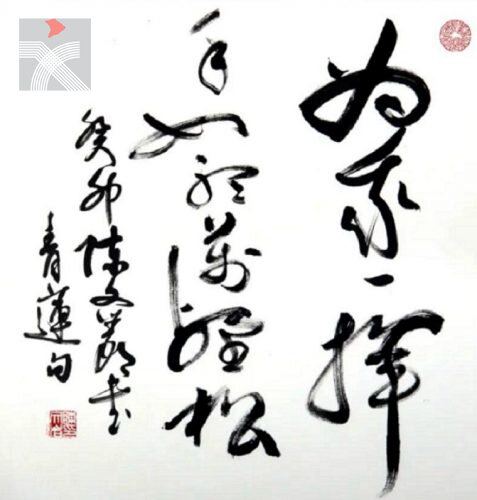 為我一揮
手如聽萬壑松
癸卯陳文書
青蓮句